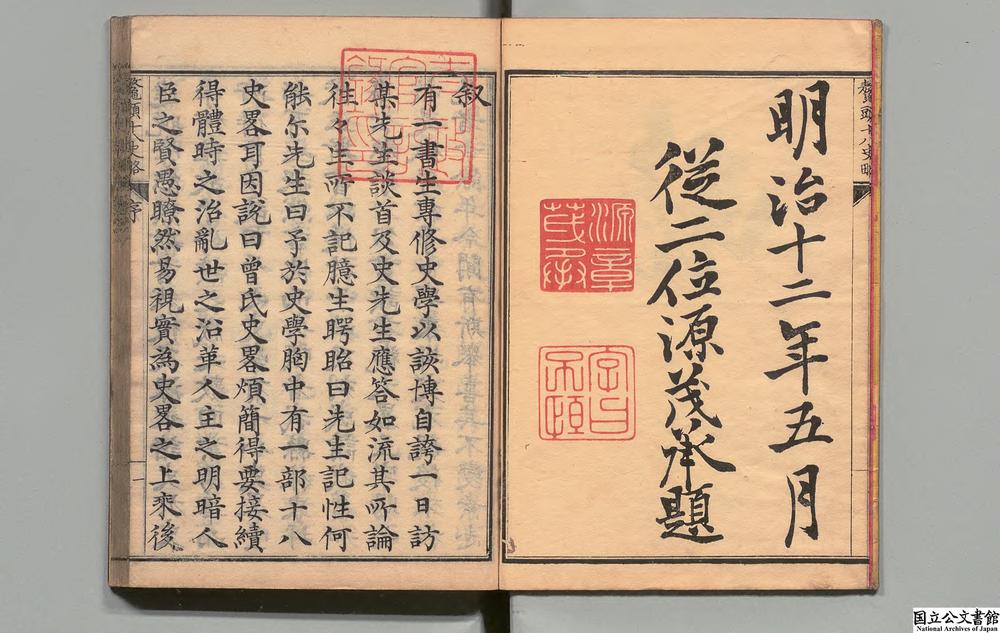 鼇頭十八史略
明治十二年五月
從二位源茂承題
源章
茂承
字曰
叙
有一書生專修史學以該博自誇一日訪
某先生談首及史先生應答如流其所論
往々生所不記臆生愕眙曰先生記性何
能尓先生曰予於史學胸中有一部十八
史畧耳因說曰曾氏史畧煩簡得要接續
得體時之治亂世之沿革人主之明暗人
臣之賢愚瞭然易視實為史畧之上乘後
鼇頭十八史略
序
一
国立公文書館
National Archives of Japan